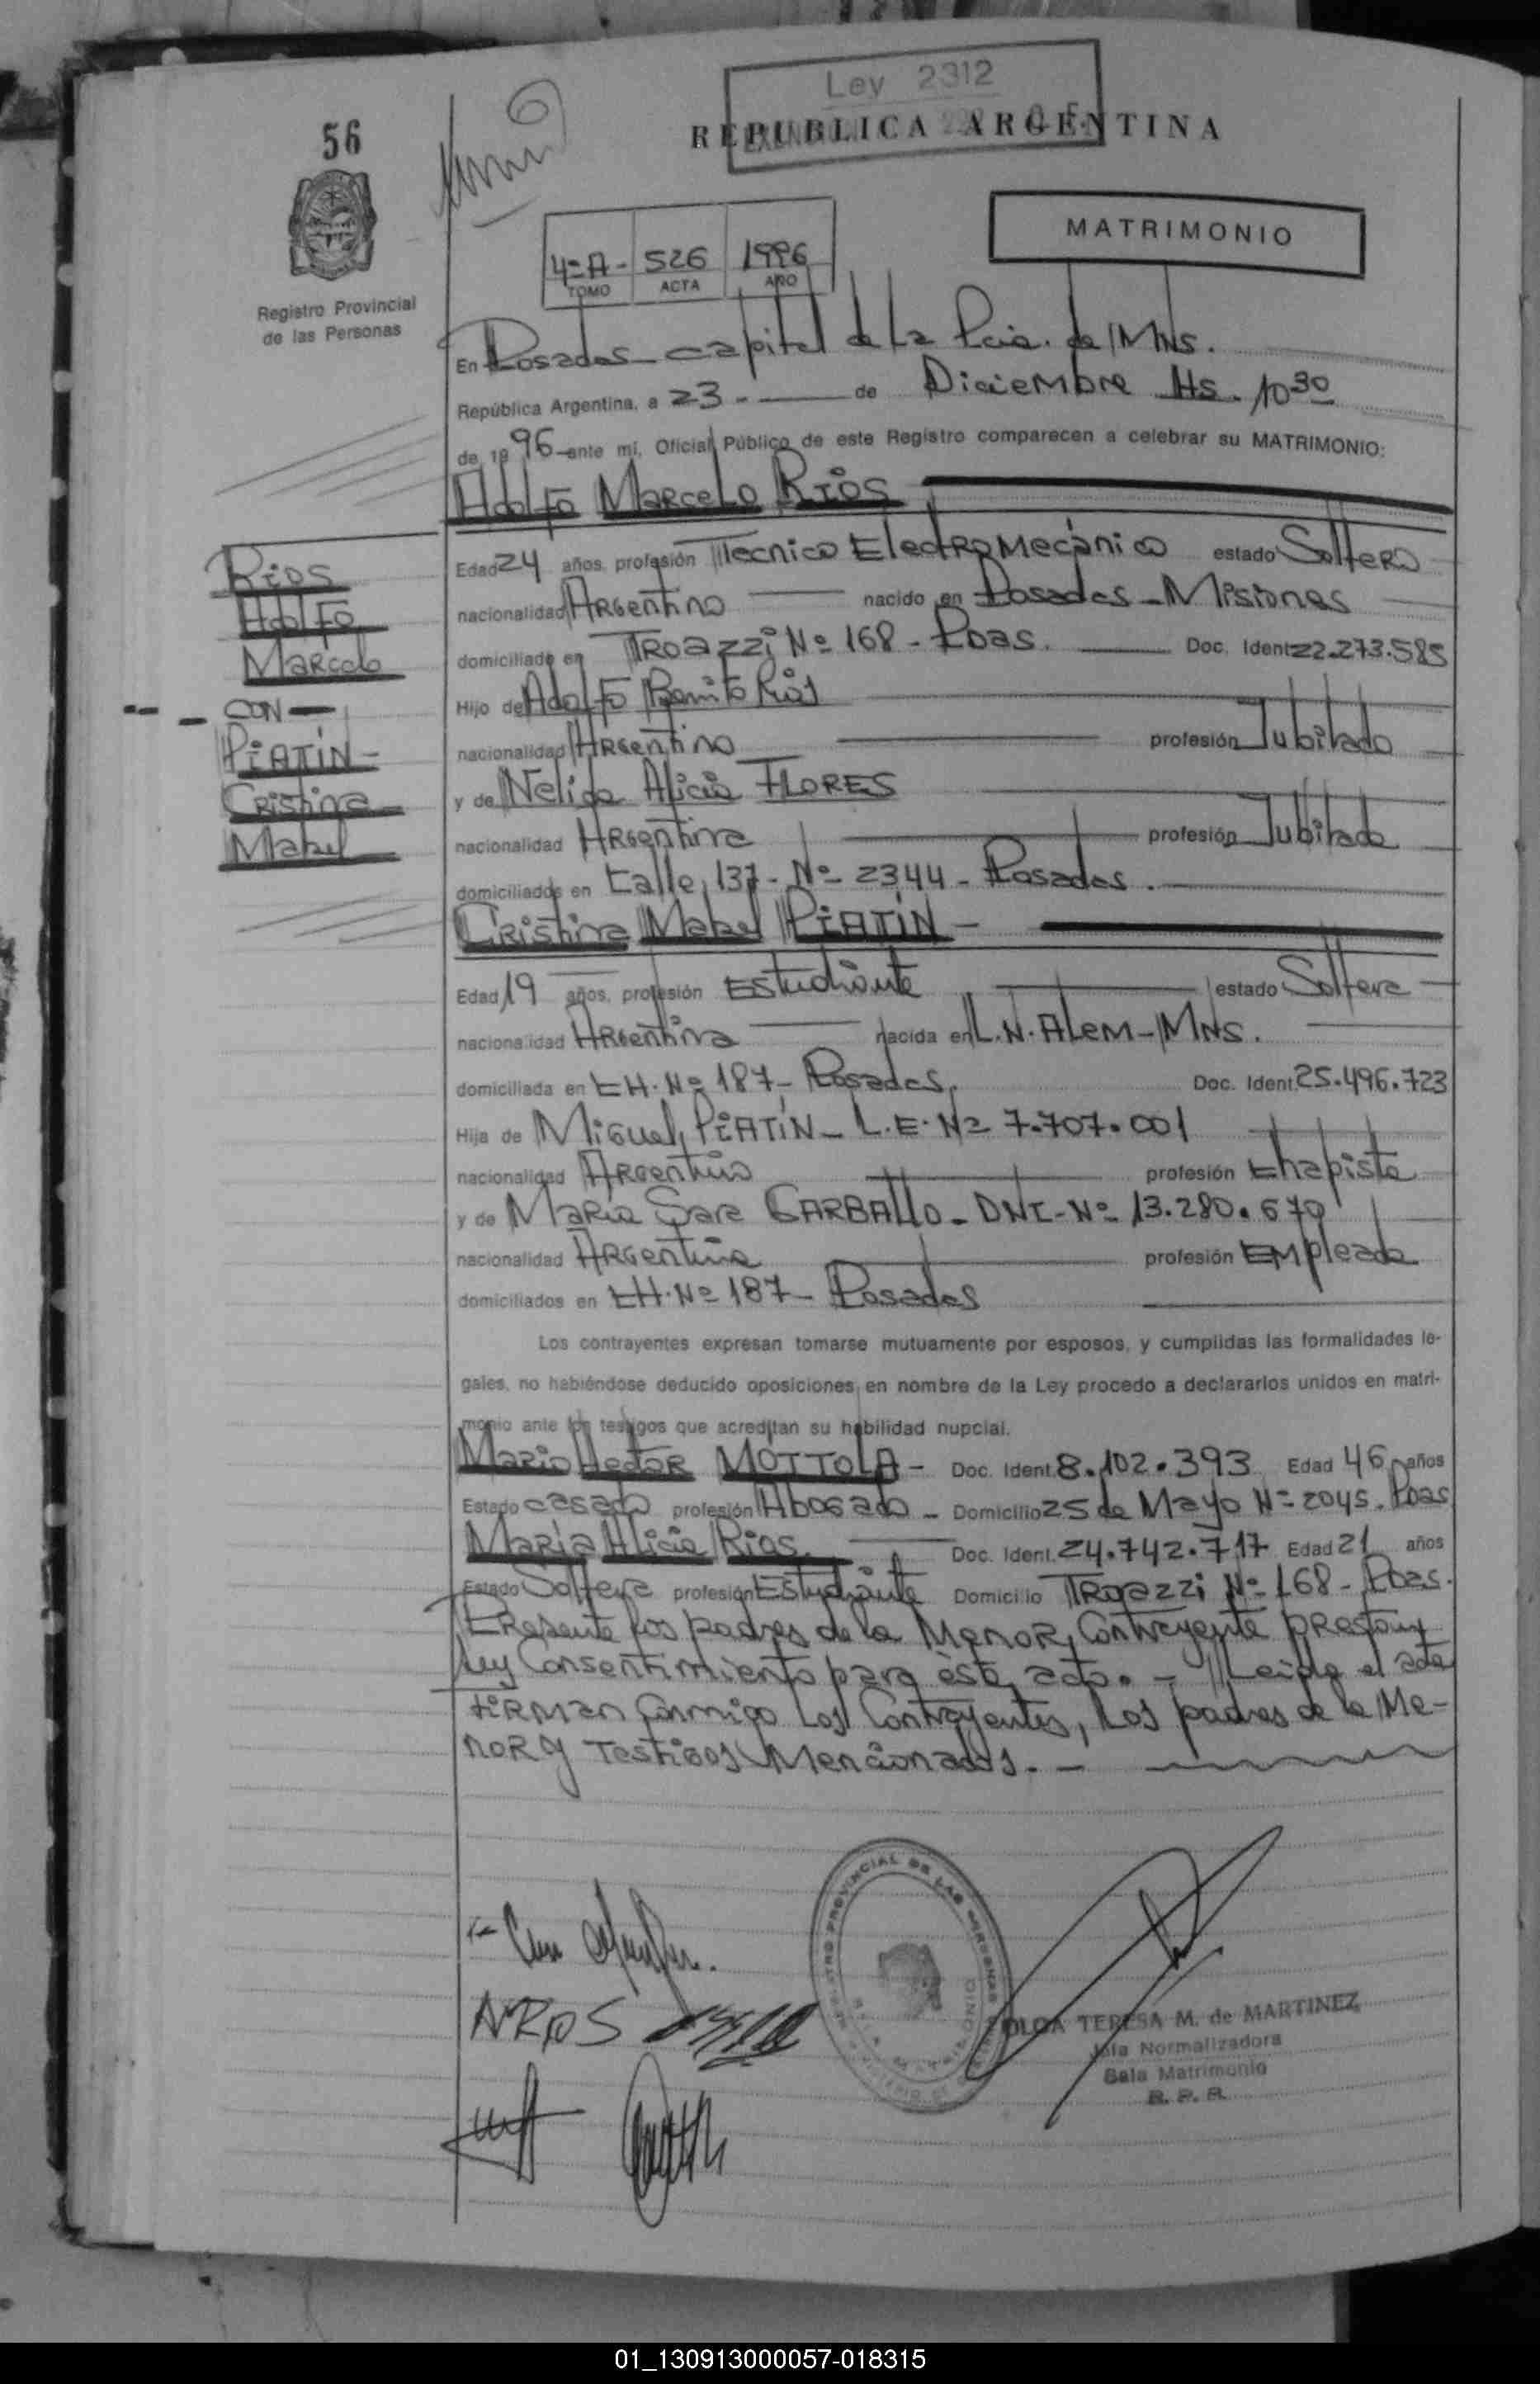 Ley 2312
56
REPUBLICA ARGENTINA
MATRIMONIO
4º A - 526 1996
TOMO ACTA AÑO
Registro Provincial
de las Personas
En Posadas capital de la Pcia. de Mns.
República Argentina, a 23 - de Diciembre Hs. 10 30
de 19 96 ante mí, Oficial Público de este Registro comparecen a celebrar su MATRIMONIO:
Adolfo Marcelo Ríos
Rios
Adolfo
Marcelo
CON
PiATIN -
Cristina
Mabel
Edad 24 años, profesión Tecnico Electromecánico estado Soltero
nacionalidad Argentino nacido en Posadas - Misiones
domiciliado en Troazzi Nº 168 - Pdas. Doc. Ident. 22.273.585
Hijo de Adolfo Benito Ríos
nacionalidad Argentino profesión Jubilado
y de Nelida Alicia FLORES
nacionalidad Argentina profesión Jubilada
domiciliados en Calle 137 - Nº 2344 - Posadas.
Cristina Mabel PiATIN -
Edad 19 años, profesión Estudiante estado Soltera
nacionalidad Argentina nacida en L.N. Alem - Mns.
domiciliada en CH. Nº 187 - Posadas. Doc. Ident. 25.496.723
Hija de Miguel PiATIN - L.E. Nº 7.707.001
nacionalidad Argentino profesión Chapista
y de Maria Sara CARBALLO - DNI - Nº 13.280.670
nacionalidad Argentina profesión Empleada
domiciliados en CH. Nº 187 - Posadas
Los contrayentes expresan tomarse mutuamente por esposos, y cumplidas las formalidades le-
gales, no habiéndose deducido oposiciones en nombre de la Ley procedo a declararlos unidos en matri-
monio ante los testigos que acreditan su habilidad nupcial.
Mario Hector MOTTOLA - Doc. Ident. 8.102.393 Edad 46 años
Estado casado profesión Abogado - Domicilio 25 de Mayo Nº 2045. Pdas
María Alicia Rios. Doc. Ident. 24.742.717 Edad 21 años
Estado Soltera profesión Estudiante Domicilio Troazzi Nº 168 - Pdas.
Presente los padres de la Menor Contrayente prestan
Consentimiento para éste acto. - Leida el acta
firman Conmigo Los Contrayentes, Los padres de la Me-
nor y Testigos Mencionados. -
REGISTRO PROVINCIAL DE LAS PERSONAS
OLGA TERESA M. de MARTINEZ
Jefa Normalizadora
Sala Matrimonio
R. P. P.
01_130913000057-018315